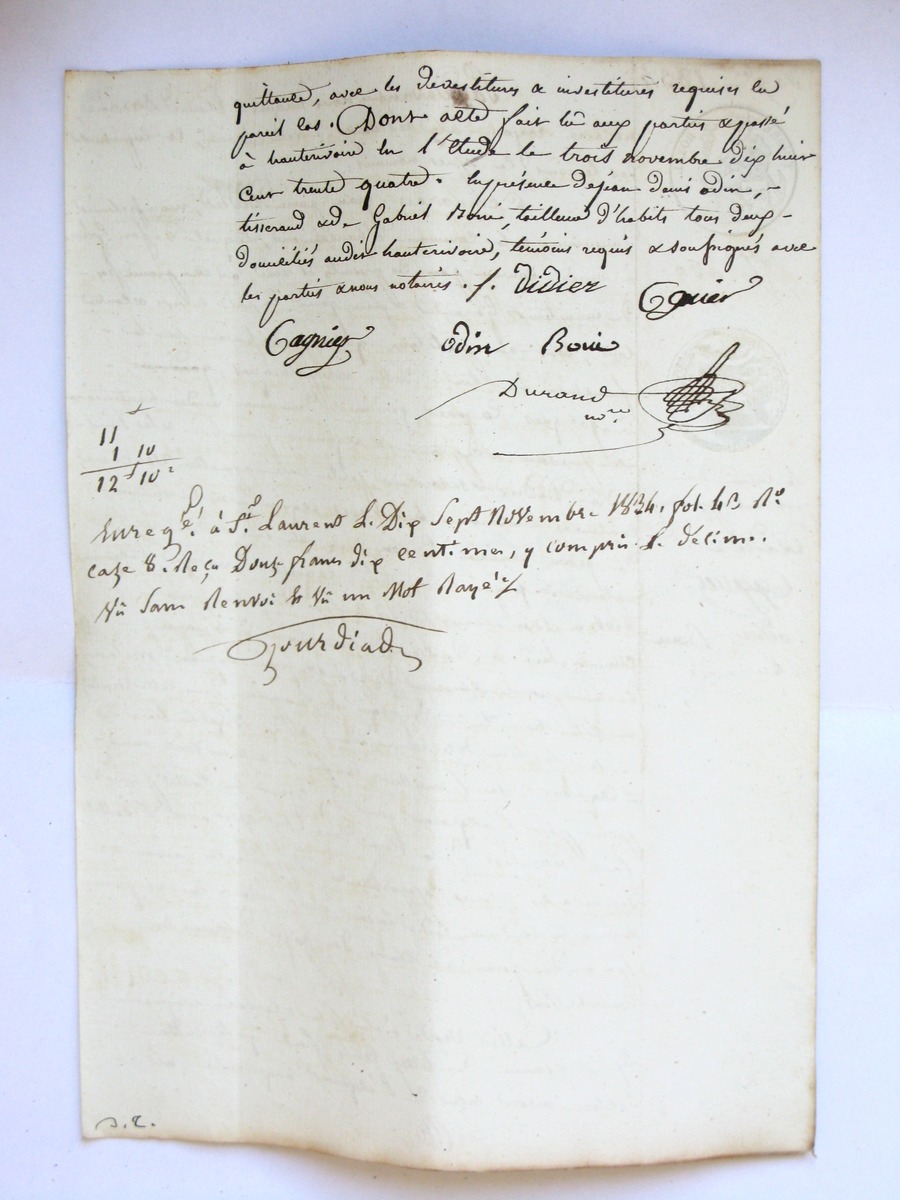 quittance, avec les devestitures & investitures requises en
pareil cas. Dont acte fait lu aux parties & passé
à hauterivoire en l'Etude le trois novembre dix huit
Cent trente quatre. En présence de jean denis odin, -
tisserand & de Gabriel Boni, tailleur d'habits tous deux -
domiciliés audit hauterivoire, témoins requis & soussignés avec
les parties & nous notaires. /. Didier
Gagnier odin
Durand
nore
11
1 10
12 10c
Enregé. à St. Laurent Le Dix Sept Novembre 1834, fol. 43 Ro
case 8. Reçu Douze francs dix centimes, y compris le décime.
Vû Sans Renvoi & Vû un Mot Rayé